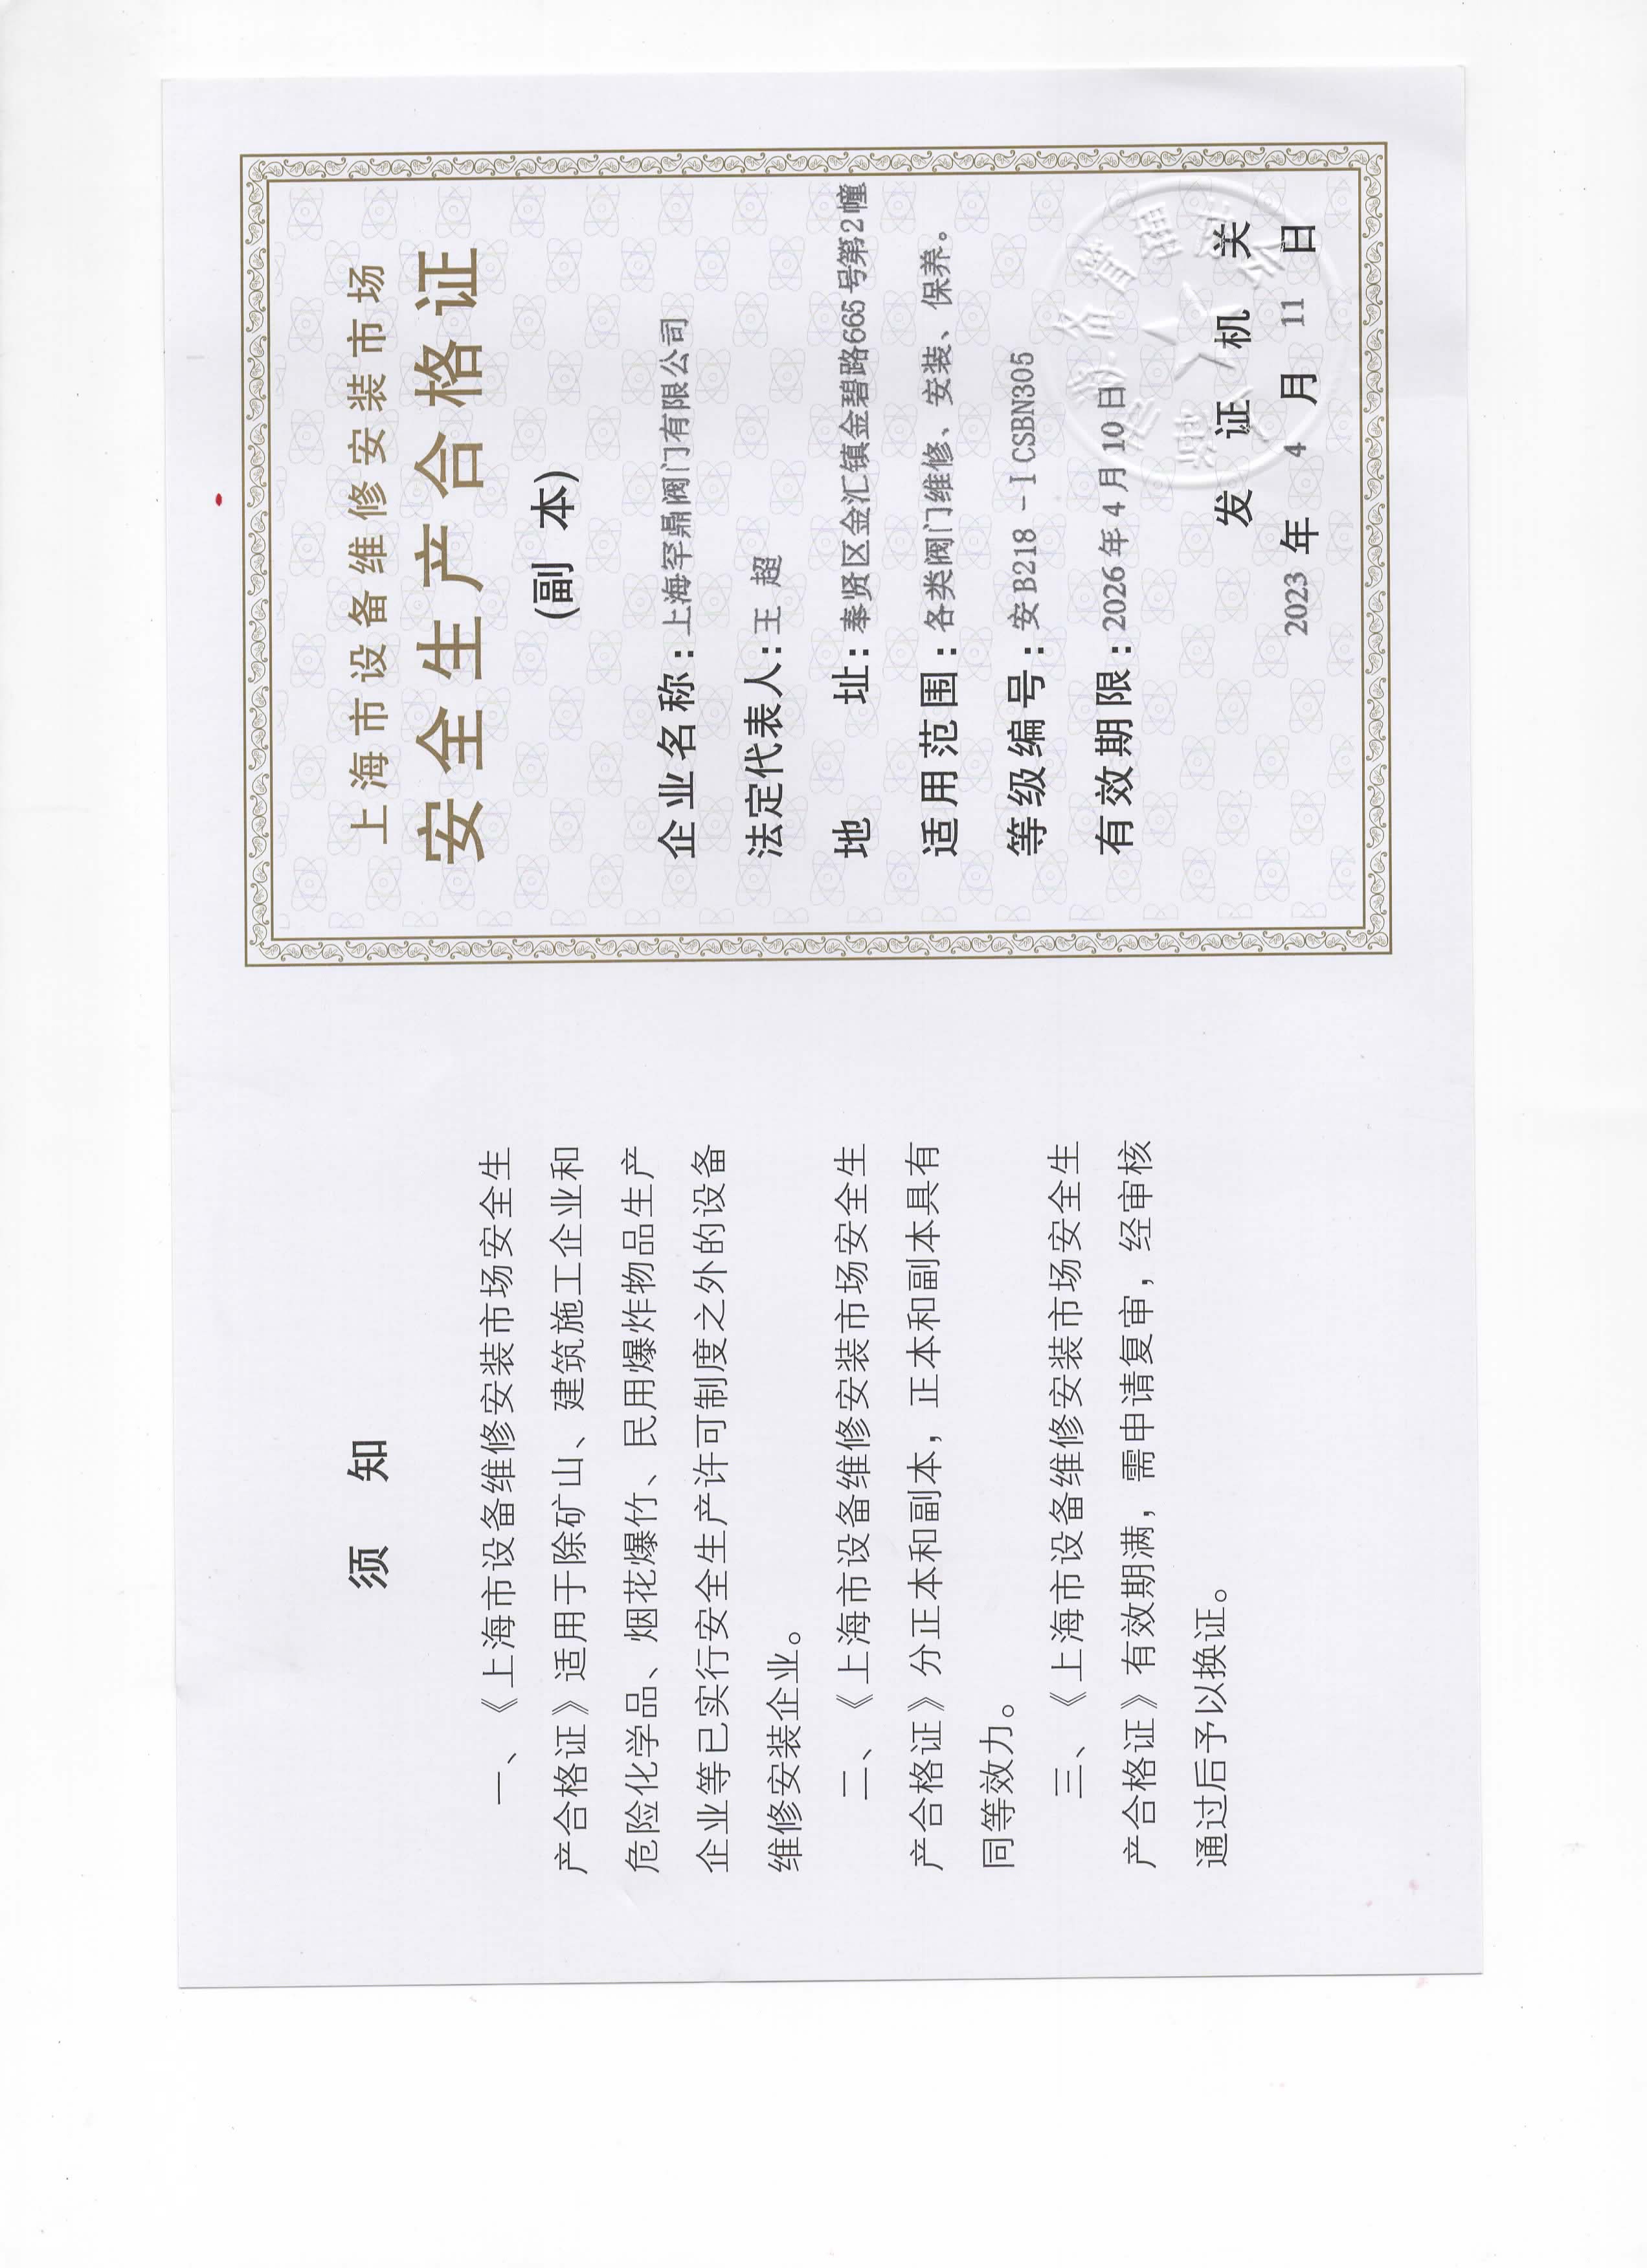 须 知
一、《上海市设备维修安装市场安全生
产合格证》适用于除矿山、建筑施工企业和
危险化学品、烟花爆竹、民用爆炸物品生产
企业等已实行安全生产许可制度之外的设备
维修安装企业。
二、《上海市设备维修安装市场安全生
产合格证》分正本和副本，正本和副本具有
同等效力。
三、《上海市设备维修安装市场安全生
产合格证》有效期满，需申请复审，经审核
通过后予以换证。
上海市设备维修安装市场
安全生产合格证
(副 本)
企业名称：上海罕鼎阀门有限公司
法定代表人：王 超
地 址：奉贤区金汇镇金碧路665号第2幢
适用范围：各类阀门维修、安装、保养。
等级编号：安B218-I CSBN305
有效期限：2026年4月10日
发 证 机 关
2023 年 4 月 11 日